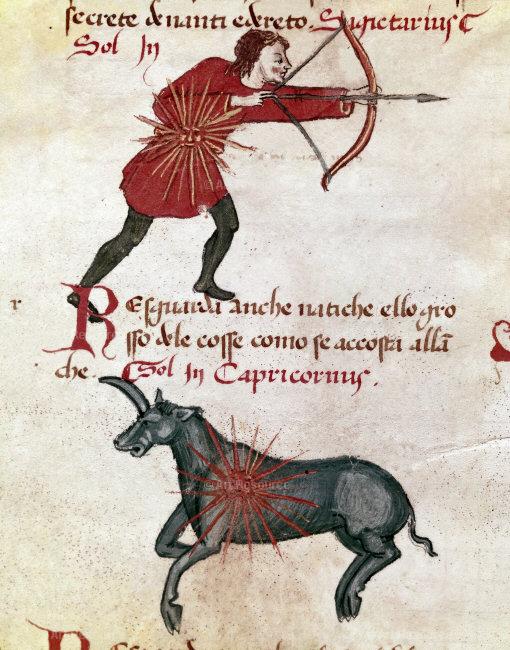 secrete dinanti edreto. Sagictarius
Sol In
Resguarda anche natiche ello gro
sso dele cosse como se accosta allā
che. Sol In Capricornus.